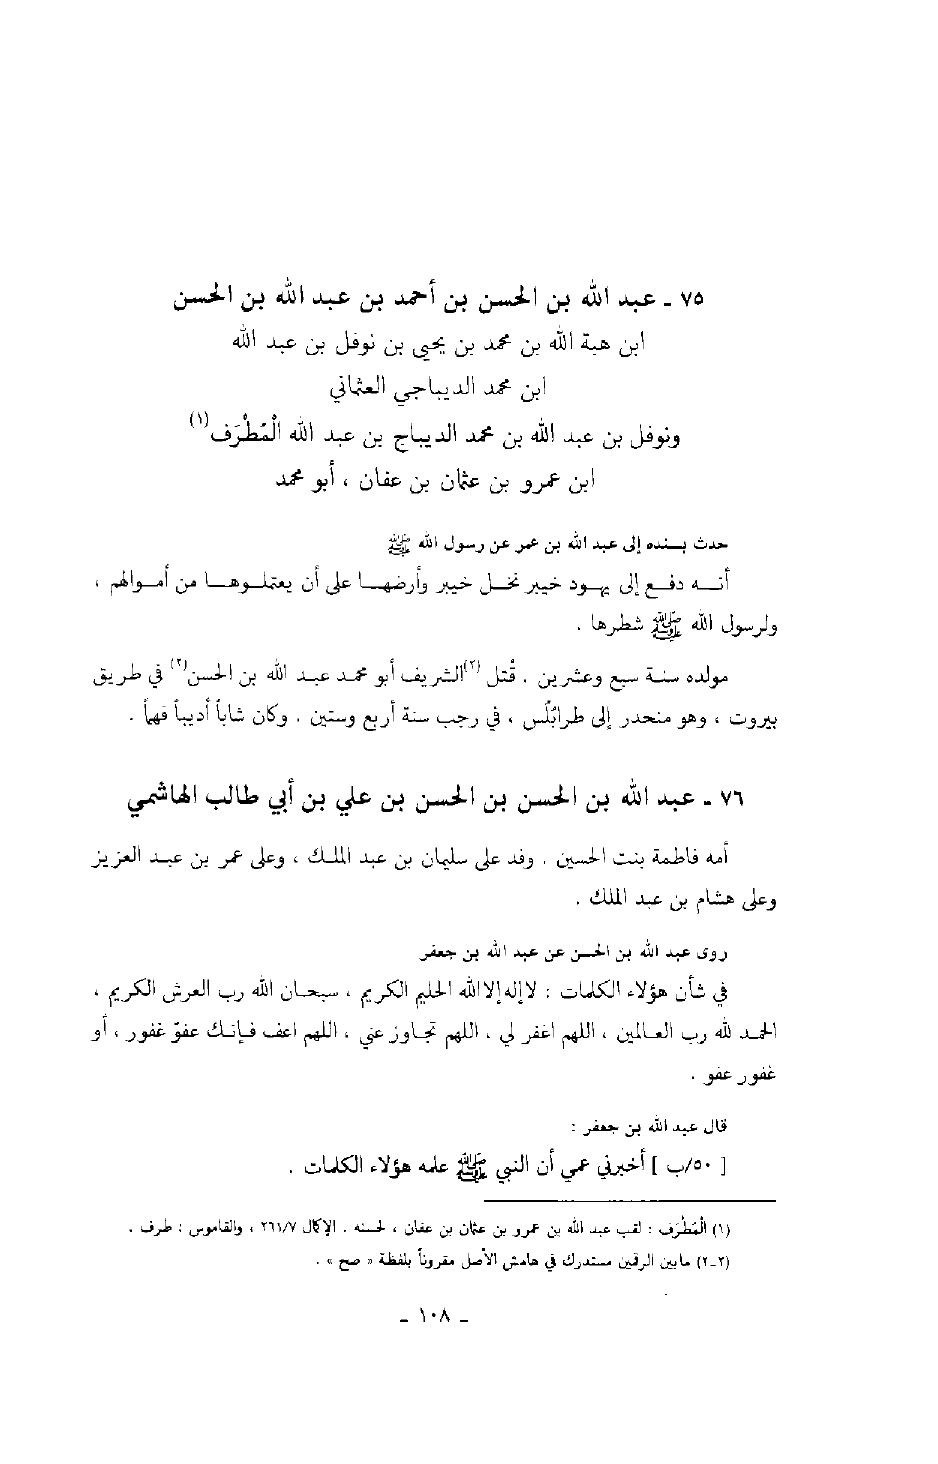 ٧٥ ـ عبد الله بن الحسن بن أحمد بن عبد الله بن الحسن
ابن هبة الله بن محمد بن يحيى بن نوفل بن عبد الله
ابن محمد الديباجي العثماني
ونوفل بن عبد الله بن محمد الديباج بن عبد الله الْمُطْرَف(١)
ابن عمرو بن عثمان بن عفان ، أبو محمد
حدث بسنده إلى عبد الله بن عمر عن رسول الله ﷺ
أنه دفع إلى يهود خيبر نخل خيبر وأرضها على أن يعتملوها من أموالهم ،
ولرسول الله ﷺ شطرها .
مولده سنة سبع وعشرين . قُتل (٢)الشريف أبو محمد عبد الله بن الحسن(٢) في طريق
بيروت ، وهو منحدر إلى طرابُلُس ، في رجب سنة أربع وستين . وكان شاباً أديباً فهماً .
٧٦ ـ عبد الله بن الحسن بن الحسن بن علي بن أبي طالب الهاشمي
أمه فاطمة بنت الحسين . وفد على سليمان بن عبد الملك ، وعلى عمر بن عبد العزيز
وعلى هشام بن عبد الملك .
روى عبد الله بن الحسن عن عبد الله بن جعفر
في شأن هؤلاء الكلمات : لا إله إلا الله الحليم الكريم ، سبحان الله رب العرش الكريم ،
الحمد لله رب العالمين ، اللهم اغفر لي ، اللهم تجاوز عني ، اللهم اعف فإنك عفوّ غفور ، أو
غفور عفو .
قال عبد الله بن جعفر :
[ ٥٠/ب ] أخبرني عمي أن النبي ﷺ علمه هؤلاء الكلمات .
(١) الْمُطْرَف : لقب عبد الله بن عمرو بن عثمان بن عفان ، لحسنه . الإكمال ٢٦١/٧ ، والقاموس : طرف .
(٢-٢) مابين الرقمين مستدرك في هامش الأصل مقروناً بلفظة « صح » .
ـ ١٠٨ ـ